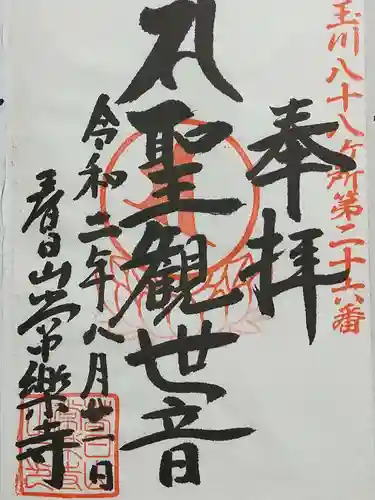 玉川八十八ヶ所第二十六番
奉拝
聖觀世音
令和二年八月廿二日
春日山常樂寺